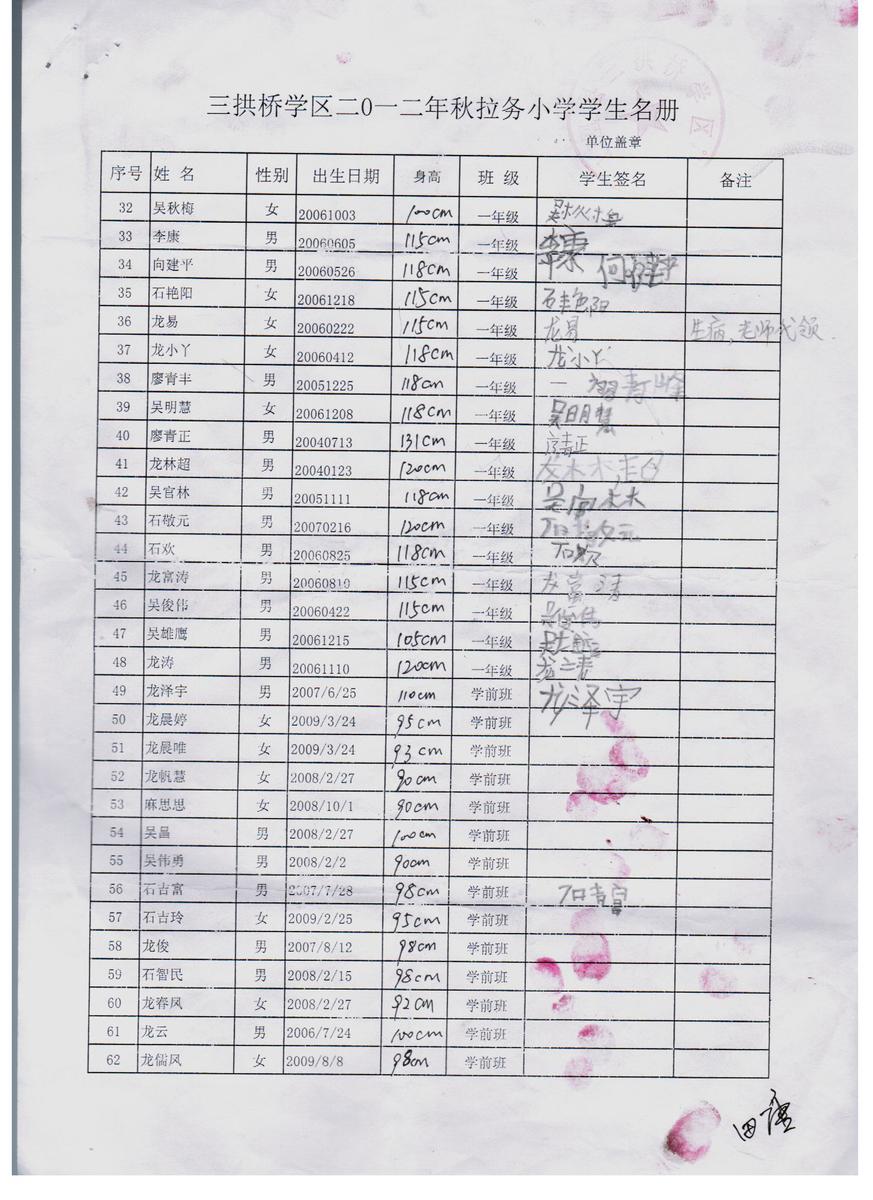 三拱桥学区二0一二年秋拉务小学学生名册
单位盖章
序号 姓 名 性别 出生日期 身高 班 级 学生签名 备注
32 吴秋梅 女 20061003 100cm 一年级
33 李康 男 20060605 115cm 一年级 李康
34 向建平 男 20060526 118cm 一年级
35 石艳阳 女 20061218 115cm 一年级 石艳阳
36 龙易 女 20060222 115cm 一年级 龙易 生病,老师代领.
37 龙小丫 女 20060412 118cm 一年级 龙小丫
38 廖青丰 男 20051225 118cm 一年级
39 吴明慧 女 20061208 118cm 一年级 吴明慧
40 廖青正 男 20040713 131cm 一年级
41 龙林超 男 20040123 120cm 一年级
42 吴官林 男 20051111 118cm 一年级
43 石敬元 男 20070216 120cm 一年级
44 石欢 男 20060825 118cm 一年级 石欢
45 龙富涛 男 20060810 115cm 一年级
46 吴俊伟 男 20060422 115cm 一年级 吴俊伟
47 吴雄鹰 男 20061215 105cm 一年级
48 龙涛 男 20061110 120cm 一年级 龙涛
49 龙泽宇 男 2007/6/25 110cm 学前班 龙泽宇
50 龙晨婷 女 2009/3/24 95cm 学前班
51 龙晨唯 女 2009/3/24 93cm 学前班
52 龙帆慧 女 2008/2/27 90cm 学前班
53 麻思思 女 2008/10/1 90cm 学前班
54 吴昌 男 2008/2/27 100cm 学前班
55 吴伟勇 男 2008/2/2 90cm 学前班
56 石吉富 男 2007/7/28 98cm 学前班
57 石吉玲 女 2009/2/25 95cm 学前班
58 龙俊 男 2007/8/12 98cm 学前班
59 石智民 男 2008/2/15 98cm 学前班
60 龙春凤 女 2008/2/27 92cm 学前班
61 龙云 男 2006/7/24 100cm 学前班
62 龙儒风 女 2009/8/8 98cm 学前班